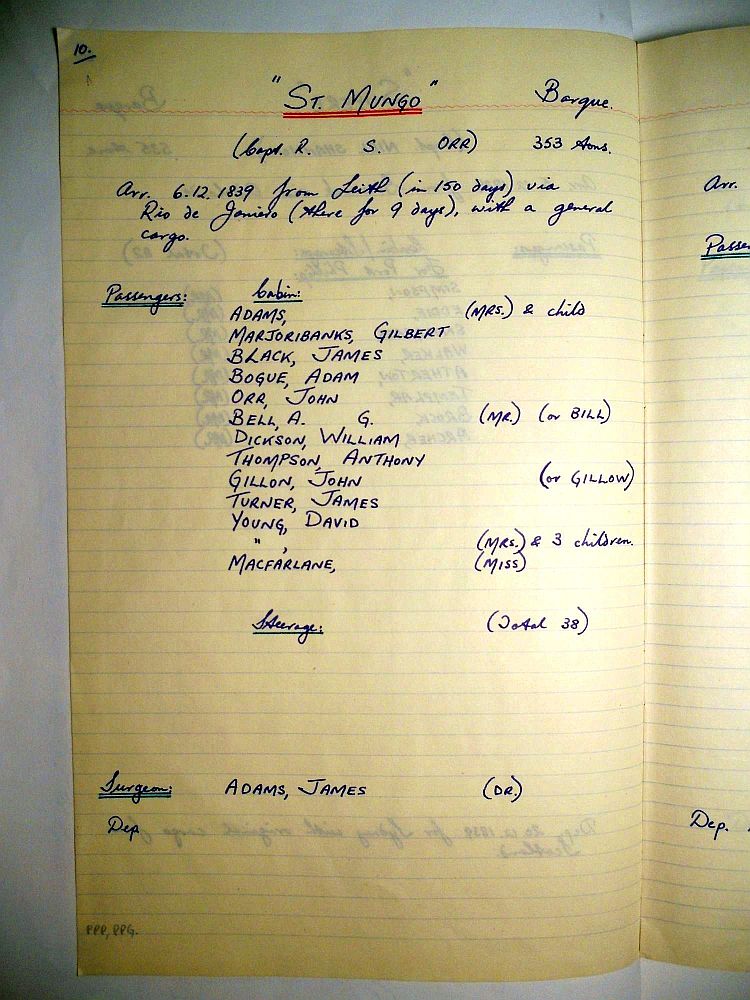 10.
"ST. MUNGO" Barque.
(Capt. R. S. ORR) 353 tons.
Arr. 6.12.1839 from Leith (in 150 days) via
Rio de Janiero (there for 9 days), with a general
cargo.
Passengers: Cabin:
ADAMS, (MRS.) & child
MARJORIBANKS, GILBERT
BLACK, JAMES
BOGUE, ADAM
ORR, JOHN
BELL, A. G. (MR.) (or BILL)
DICKSON, WILLIAM
THOMPSON, ANTHONY
GILLON, JOHN (or GILLOW)
TURNER, JAMES
YOUNG, DAVID
" , (MRS.) & 3 children.
MACFARLANE, (MISS)
Steerage: (Total 38)
Surgeon: ADAMS, JAMES (DR.)
Dep
PPP, PPG.
Arr.
Passe
Dep.